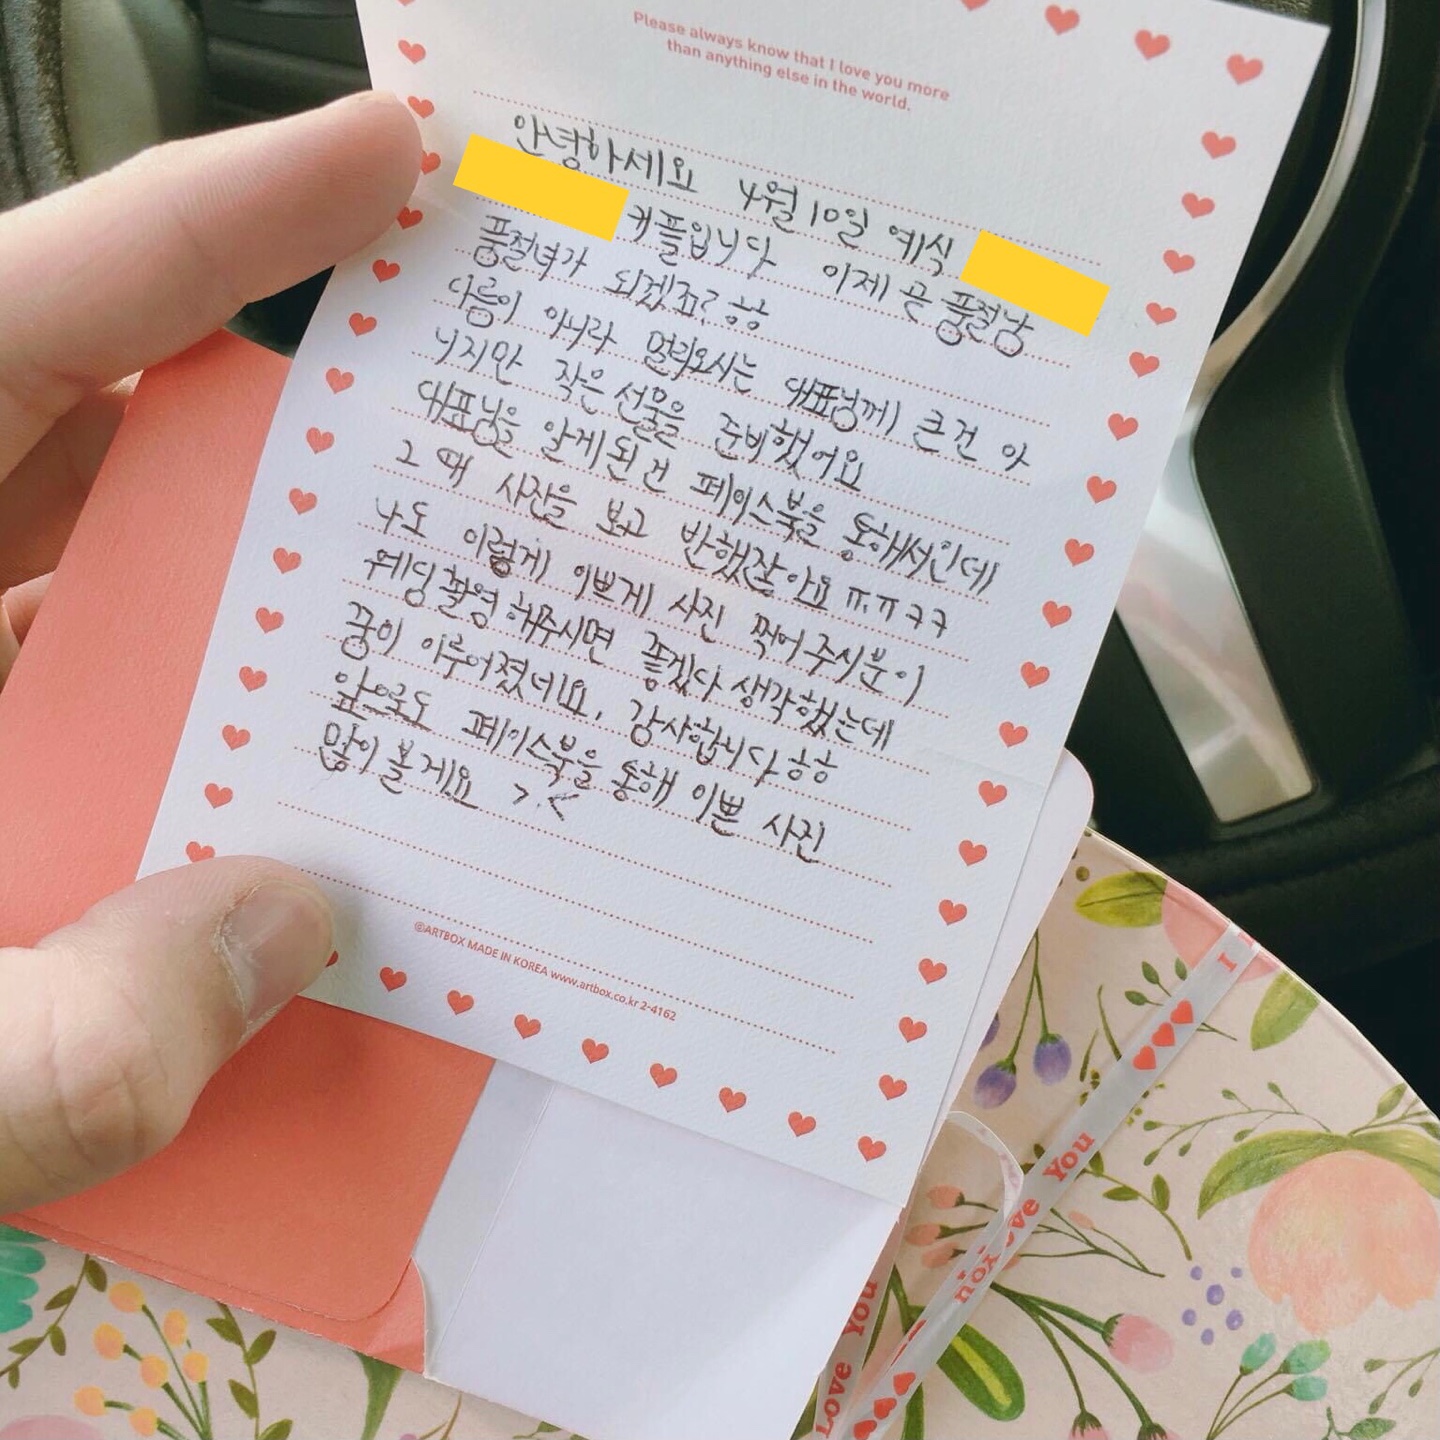 Please always know that I love you more
than anything else in the world.
안녕하세요 4월 10일 예식
커플입니다 이제 곧 품절남
품절녀가 되겠죠? ㅎㅎ
다름이 아니라 멀리오시는 대표님께 큰건 아
니지만 작은 선물을 준비했어요
대표님을 알게된건 페이스북을 통해서인데
그 때 사진을 보고 반했잖아요 ㅠ.ㅠ ㅋㅋ
나도 이렇게 이쁘게 사진 찍어주시분이
웨딩촬영 해주시면 좋겠다 생각했는데
꿈이 이루어졌네요. 감사합니다 ㅎㅎ
앞으로도 페이스북을 통해 이쁜 사진
많이 볼게요 >.<
©ARTBOX MADE IN KOREA www.artbox.co.kr 2-4162
I
Love You
Love You
you